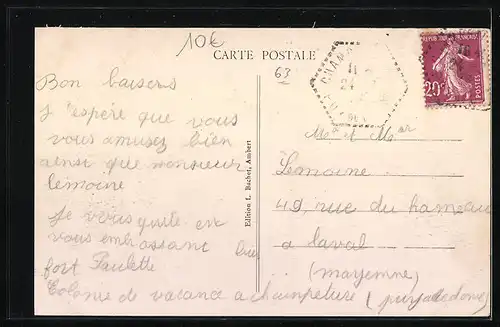 10€
CARTE POSTALE
63
REPUBLIQUE FRANÇAISE
20c
POSTES
Bon baisers
j'espère que vous
vous amusez bien
ainsi que monsieur
lemoine
Je vous quite en
vous embrassant bien
fort Paulette
Colonie de vacance a champeture (puy de dome)
Edition L. Bachet, Ambert
Mr et Mme
Lemoine
49, rue du hameau
a laval
(mayenne)